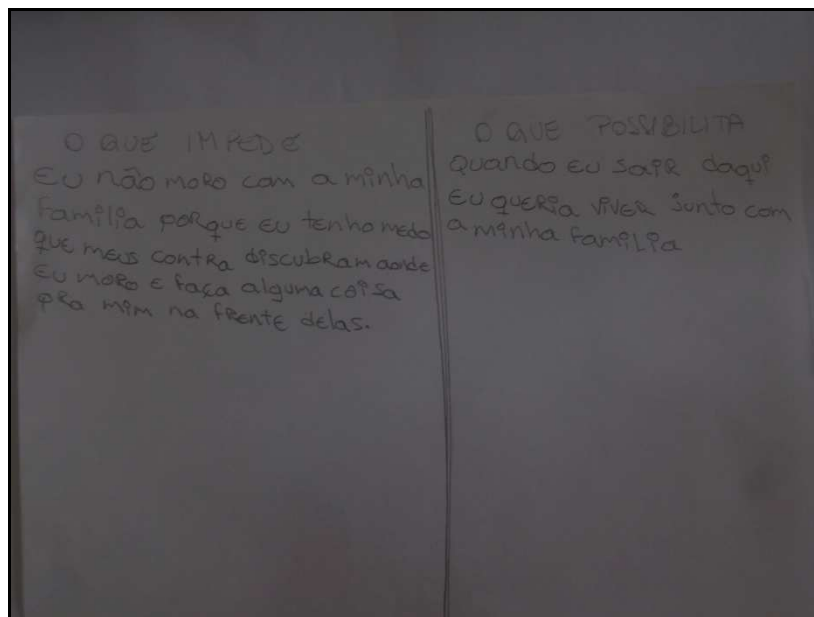 O QUE IMPEDE
EU não moro com a minha
família porque eu tenho medo
que meus contra discubram aonde
EU moro e faça alguma coisa
pra mim na frente delas.
O QUE POSSIBILITA
Quando eu sair daqui
EU queria viver junto com
a minha família